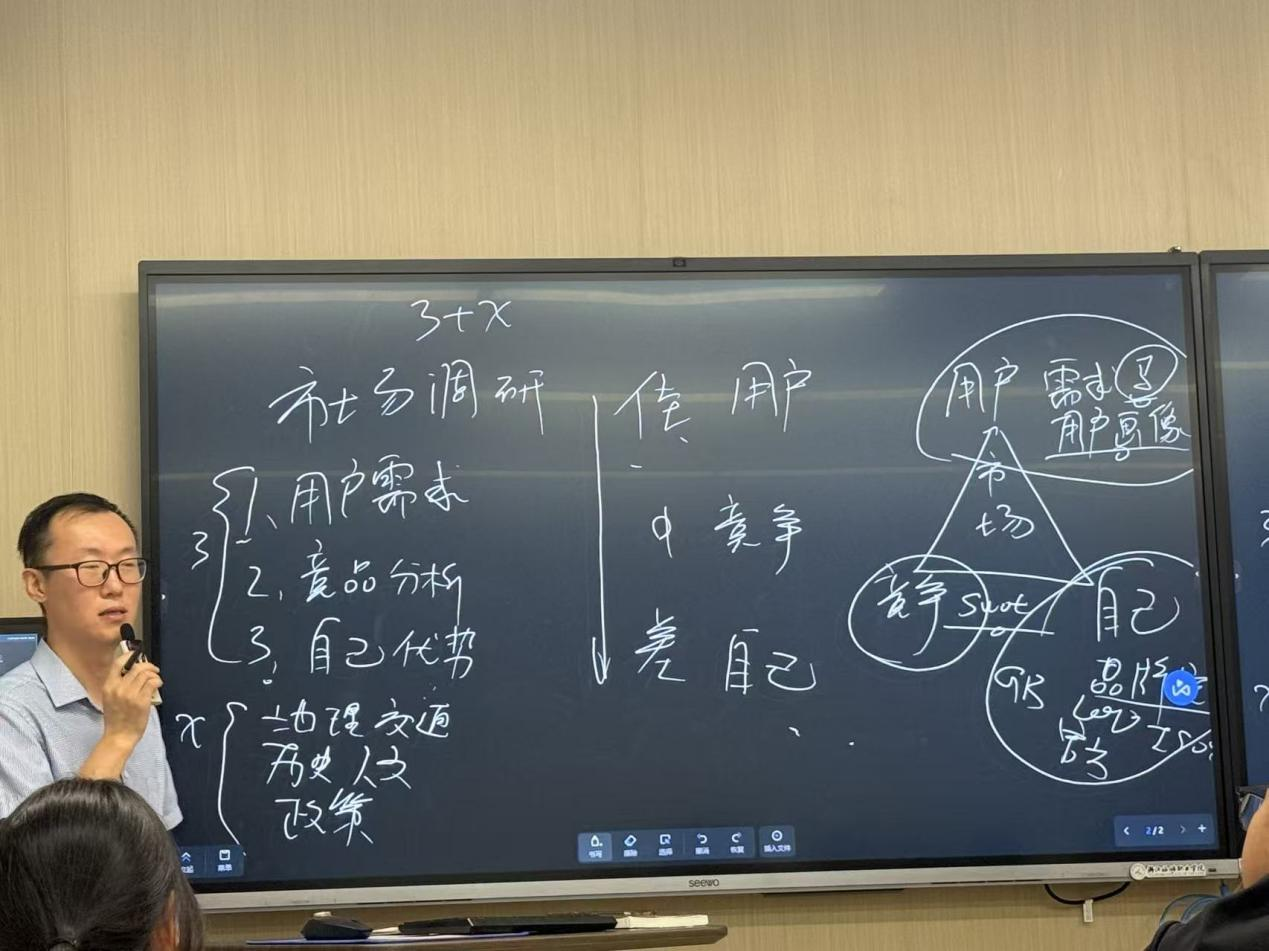 3+X
市场调研
3
1、用户需求
2、竞品分析
3、自己优势
X
地理交通
历史人文
政策
用户
中 竞争
差 自己
用户 需求
用户画像
市
场
竞争
swot
自己
品牌
书写
擦除
选择
撤消
恢复
插入文件
菜单
2/2
seewo